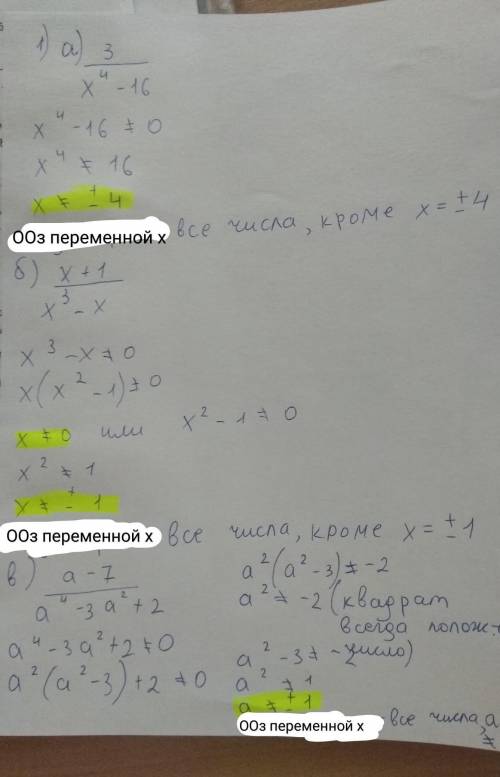 1) а) 3
x⁴ - 16
x⁴ - 16 ≠ 0
x⁴ ≠ 16
x ≠ ± 4
ООз переменной х все числа, кроме x = ± 4
б) x + 1
x³ - x
x³ - x ≠ 0
x(x² - 1) ≠ 0
x ≠ 0 или x² - 1 ≠ 0
x² ≠ 1
x ≠ ± 1
ООз переменной х все числа, кроме x = ± 1
в) a - 7
a⁴ - 3a² + 2
a⁴ - 3a² + 2 ≠ 0
a²(a² - 3) + 2 ≠ 0
a²(a² - 3) ≠ -2
a² ≠ -2 (квадрат
всегда полож.
число)
a² - 3 ≠ -2
a² ≠ 1
a ≠ ± 1
ООз переменной х все числа, a
≠